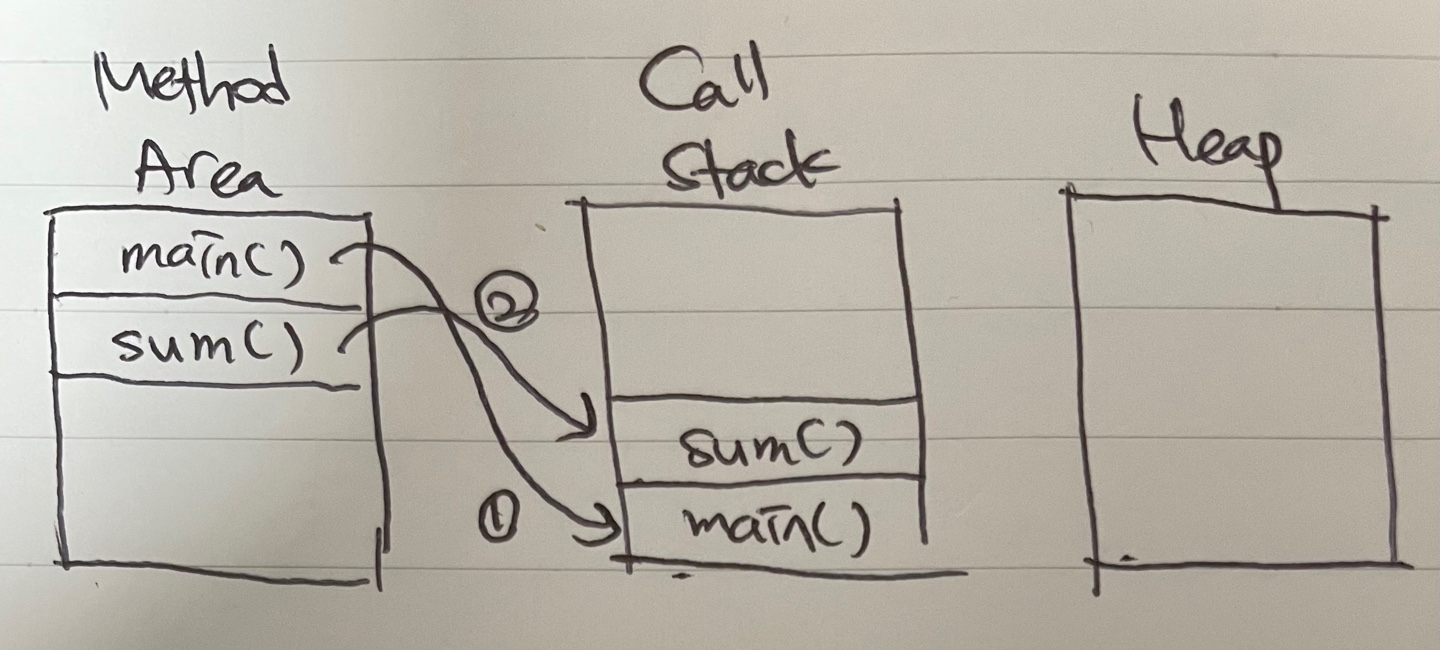 Method
Area
Call
Stack
Heap
main()
sum()
②
①
sum()
main()